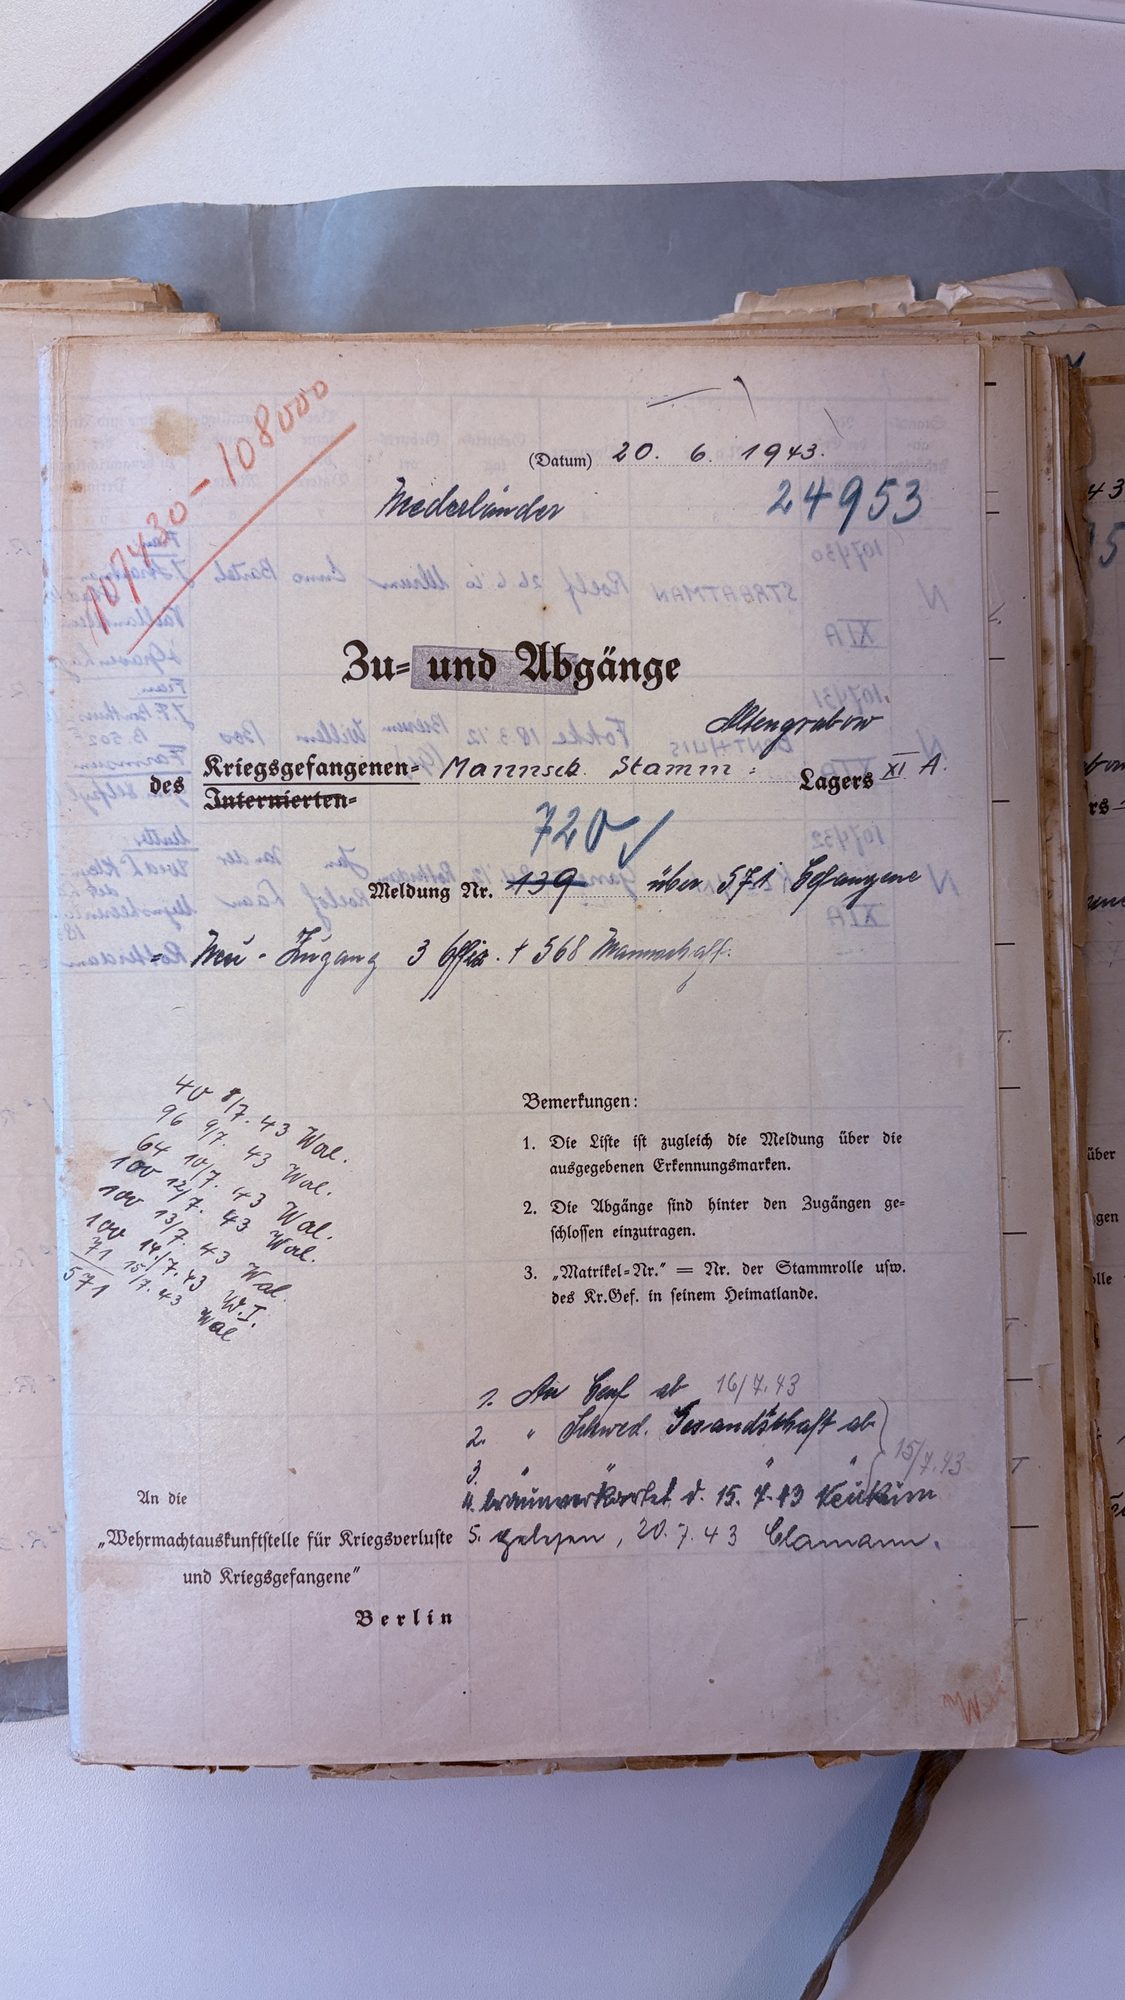 107430 - 108000
(Datum) 20. 6. 1943.
Niederländer 24953
Zu= und Abgänge
Altengrabow
des Kriegsgefangenen= Mannsch. Stamm = Lagers XI A.
Internierten=
720 ✓
Meldung Nr. 139 über 571 Gefangene
= Neu - Zugang 3 Offiz. + 568 Mannschaft.
40 8/7. 43 Wal.
96 9/7. 43 Wal.
64 10/7. 43 Wal.
100 12/7. 43 Wal.
100 13/7. 43 Wal.
100 14./7. 43 W.I.
71 15/7. 43 Wal
571
Bemerkungen:
1. Die Liste ist zugleich die Meldung über die
ausgegebenen Erkennungsmarken.
2. Die Abgänge sind hinter den Zugängen ge=
schlossen einzutragen.
3. „Matrikel=Nr.“ = Nr. der Stammrolle usw.
des Kr.Gef. in seinem Heimatlande.
1. An Genf ab 16/7.43
2. " Schwed. Gesandtschaft ab
3. " " " 15/7.43
4. d. 15. 7. 43
5. gelesen, 20. 7. 43 Clamann.
An die
„Wehrmachtauskunftstelle für Kriegsverluste
und Kriegsgefangene“
Berlin